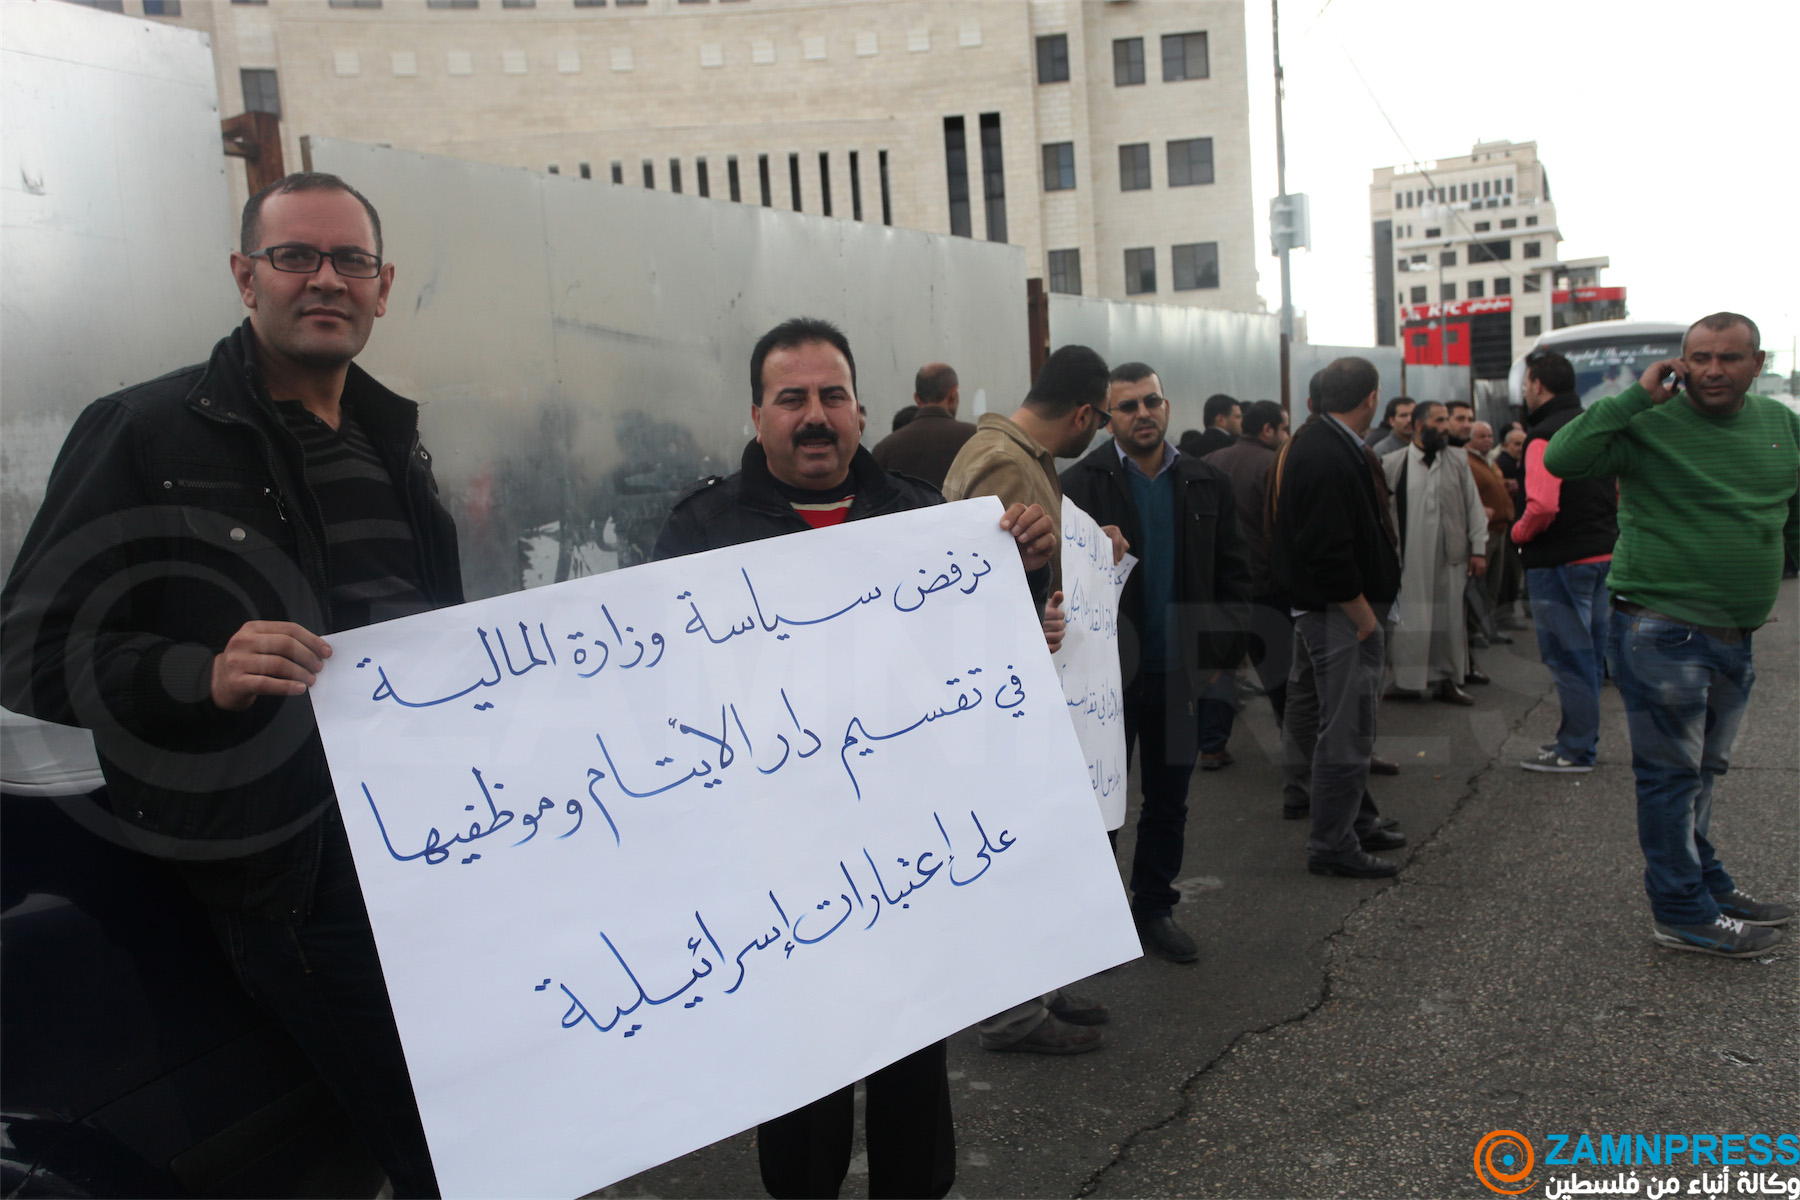 نرفض سياسة وزارة المالية
في تقسيم دار الأيتام وموظفيها
على إعتبارات إسرائيلية
KFC
ZAMNPRESS
ZAMNPRESS
وكالة أنباء من فلسطين